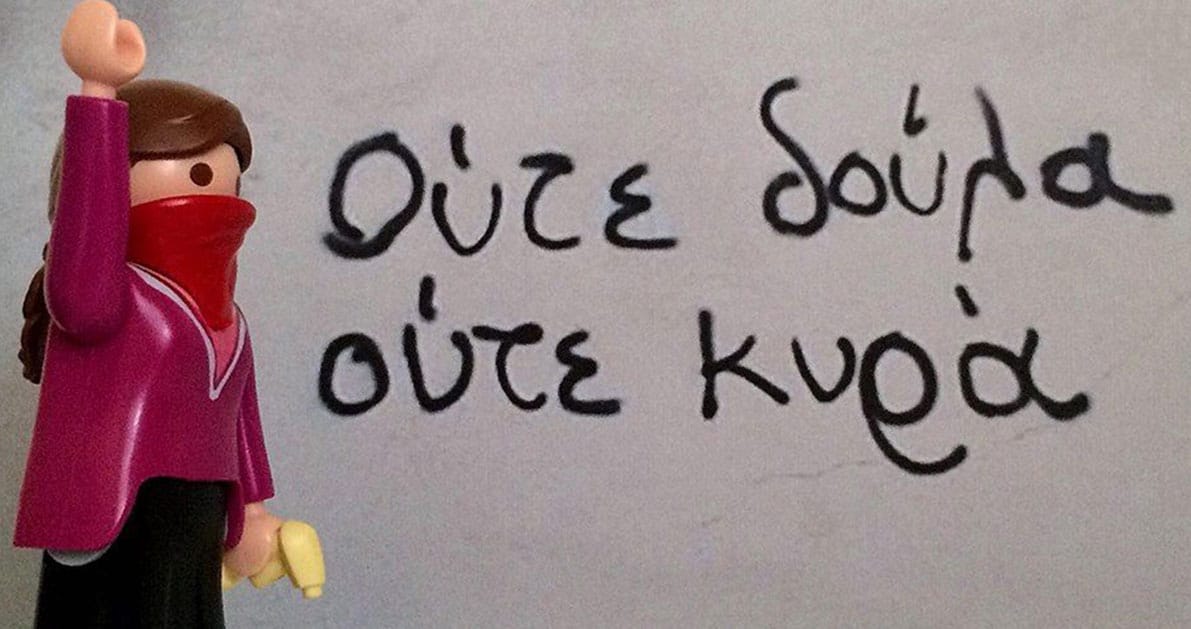 Ούτε δούλα
ούτε κυρά